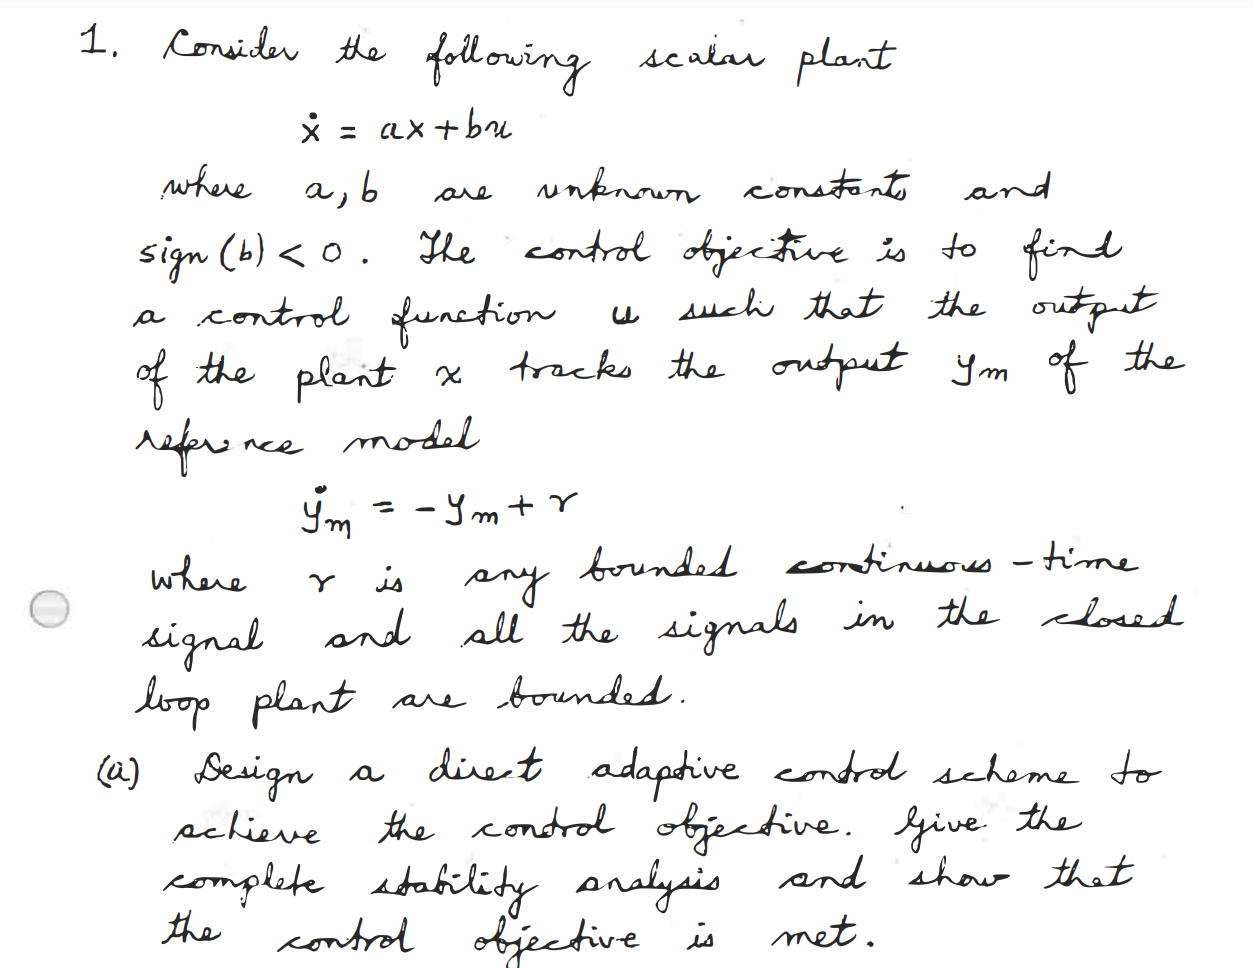 1. Consider the following scalar plant
ẋ = ax + bu
where a, b are unknown constants and
sign (b) < 0 . The control objective is to find
a control function u such that the output
of the plant x tracks the output ym of the
reference model
ẏm = - ym + r
where r is any bounded continuous - time
signal and all the signals in the closed
loop plant are bounded.
(a) Design a direct adaptive control scheme to
achieve the control objective. Give the
complete stability analysis and show that
the control objective is met.